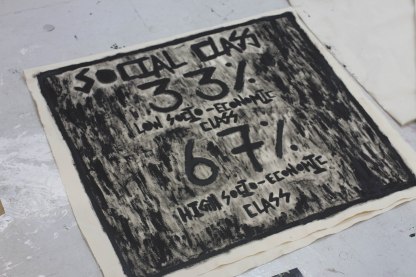 SOCIAL CLASS
33%
LOW SOCIO-ECONOMIC
CLASS
67%
HIGH SOCIO-ECONOMIC
CLASS